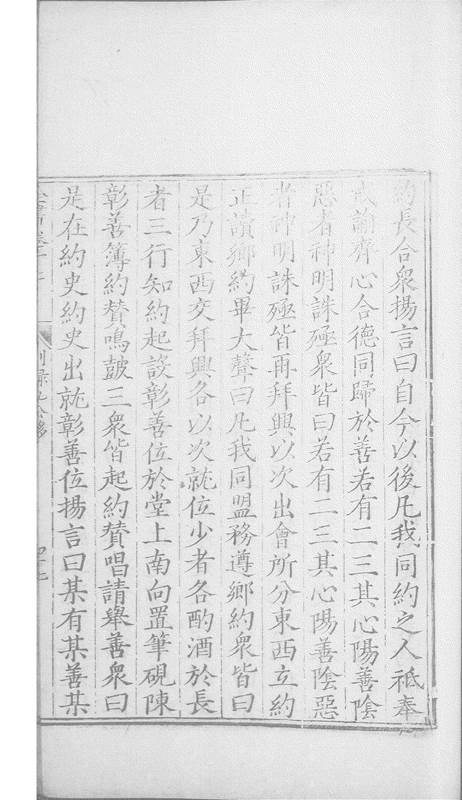 約長合衆揚言曰自今以後凡我同約之人祗奉
戒諭齊心合德同歸於善若有二三其心陽善陰
惡者神明誅殛衆皆曰若有二三其心陽善陰惡
者神明誅殛皆再拜興以次出會所分東西立約
正讀鄉約畢大聲曰凡我同盟務遵鄉約衆皆曰
是乃東西交拜興各以次就位少者各酌酒於長
者三行知約起設彰善位於堂上南向置筆硯陳
彰善簿約贊鳴鼓三衆皆起約贊唱請舉善衆曰
是在約史約史出就彰善位揚言曰某有某善某
別錄九公移